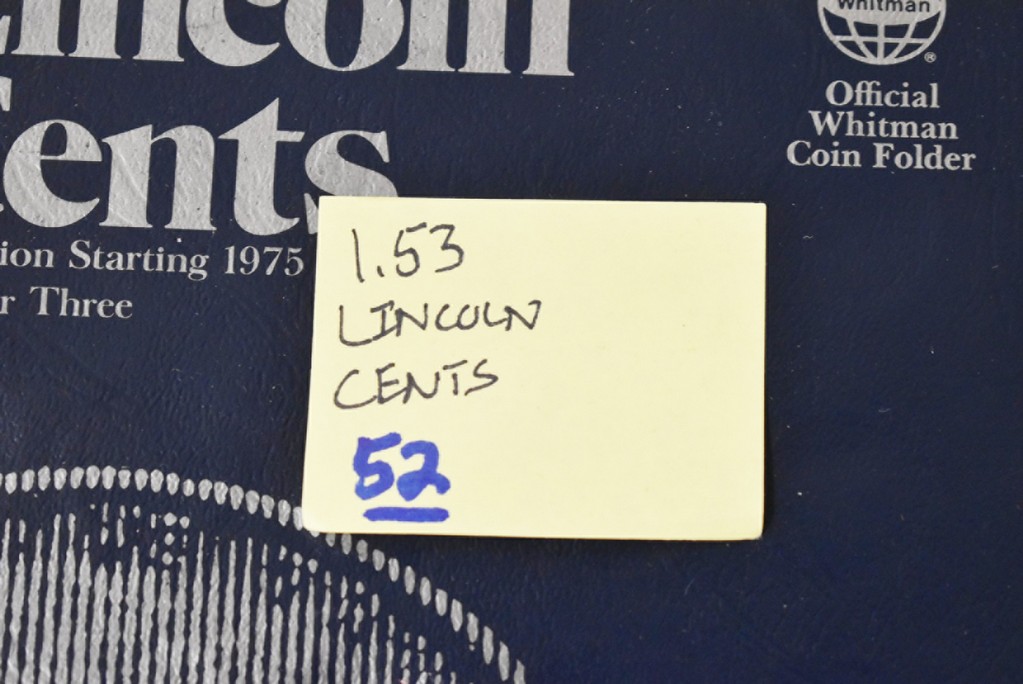 Lincoln
Cents
ion Starting 1975
r Three
Whitman
®
Official
Whitman
Coin Folder
1.53
LINCOLN
CENTS
52